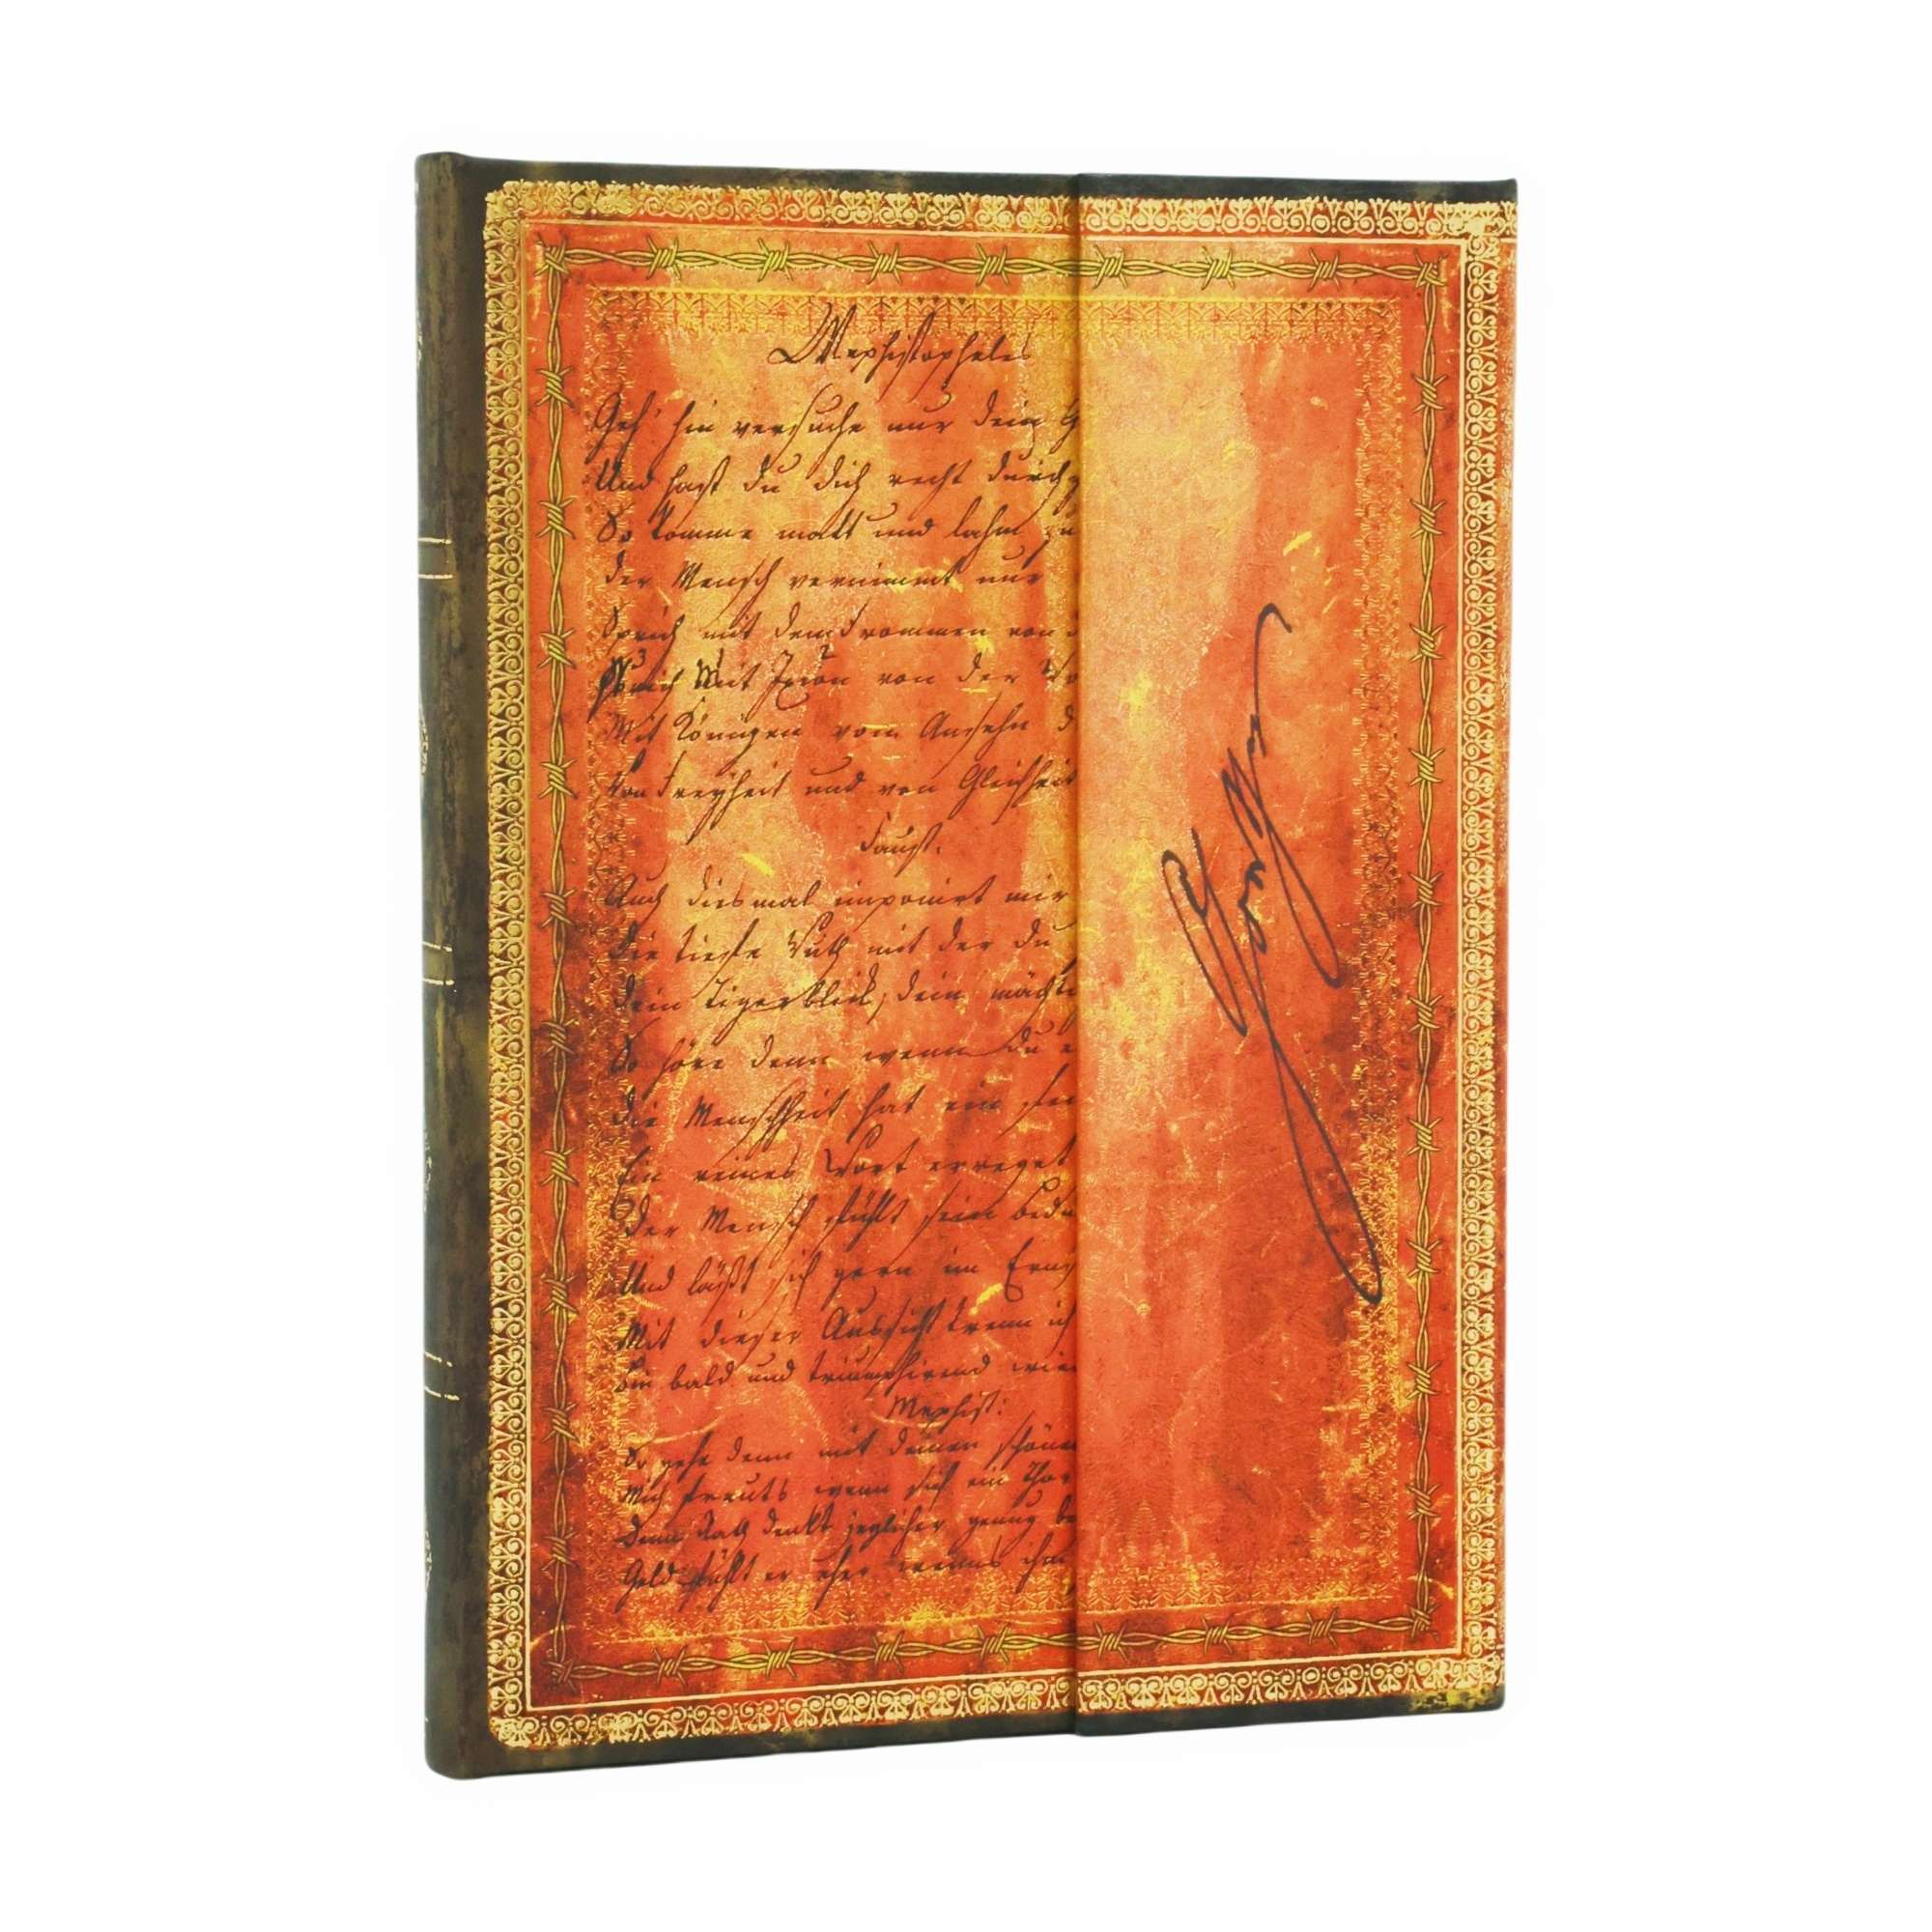 Mephistopheles
Geh' hin versuche nur dein G
Und hast du dich recht durchg
So komme matt und lahm zu
der Mensch vernimmt nur
Sprich mit dem Frommen von
Sprich Mit Ixion von der Wo
Mit Königen von Ansehn d
Von Freyheit und von Gleichheit
Faust.
Auch diesmal imponirt mir
Die tiefe Wuth mit der du
Dein Tigerblick, dein mächt
So höre denn wenn du
Die Menschheit hat ein fei
Ein reines Wort erreget
Der Mensch fühlt sein Bedü
Und läßt sich gern im Erns
Mit dieser Aussicht trenn ich
Bin bald und triumphirend wie
Mephist:
So gehe denn mit deinen schöne
Mich freuts wenn sich ein Thor
Denn Rath denkt jeglicher genug be
Geld fühlt er eher wenns ihm